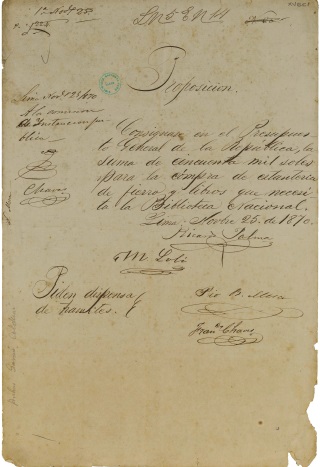 Proposicion.
Lima Nov.e 25/870
A la comision
de Instruccion pu-
blica
Chavez
Consignase en el Presupues-
to General de la República, la
suma de cincuenta mil soles
para la compra de estanteria
de fierro y libros que necesi-
ta la Biblioteca Nacional.
Lima, Novbre 25. de 1870.
Ricdo Palma
Piden dispensa
de tramites.
Pio B. Mesa
Franco Chavez